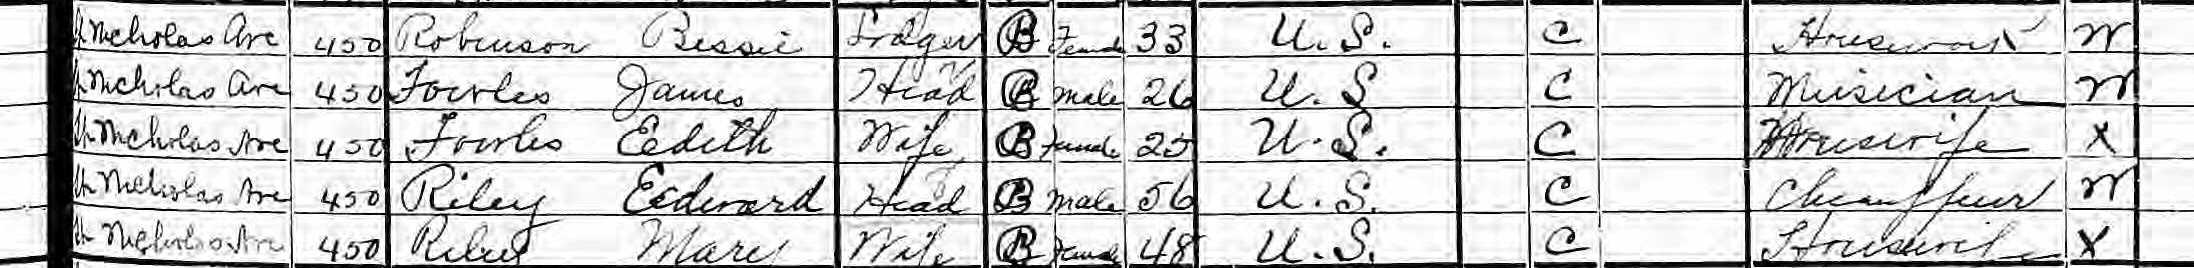 St Nicholas Ave 450 Robinson Bessie Lodger B Female 33 U.S. C Housework W
St Nicholas Ave 450 Fowles James Head B Male 26 U.S. C Musician W
St Nicholas Ave 450 Fowles Edith Wife B Female 25 U.S. C Housewife X
St Nicholas Ave 450 Riley Edward Head B Male 56 U.S. C Chauffeur W
St Nicholas Ave 450 Riley Mary Wife B Female 48 U.S. C Housewife X